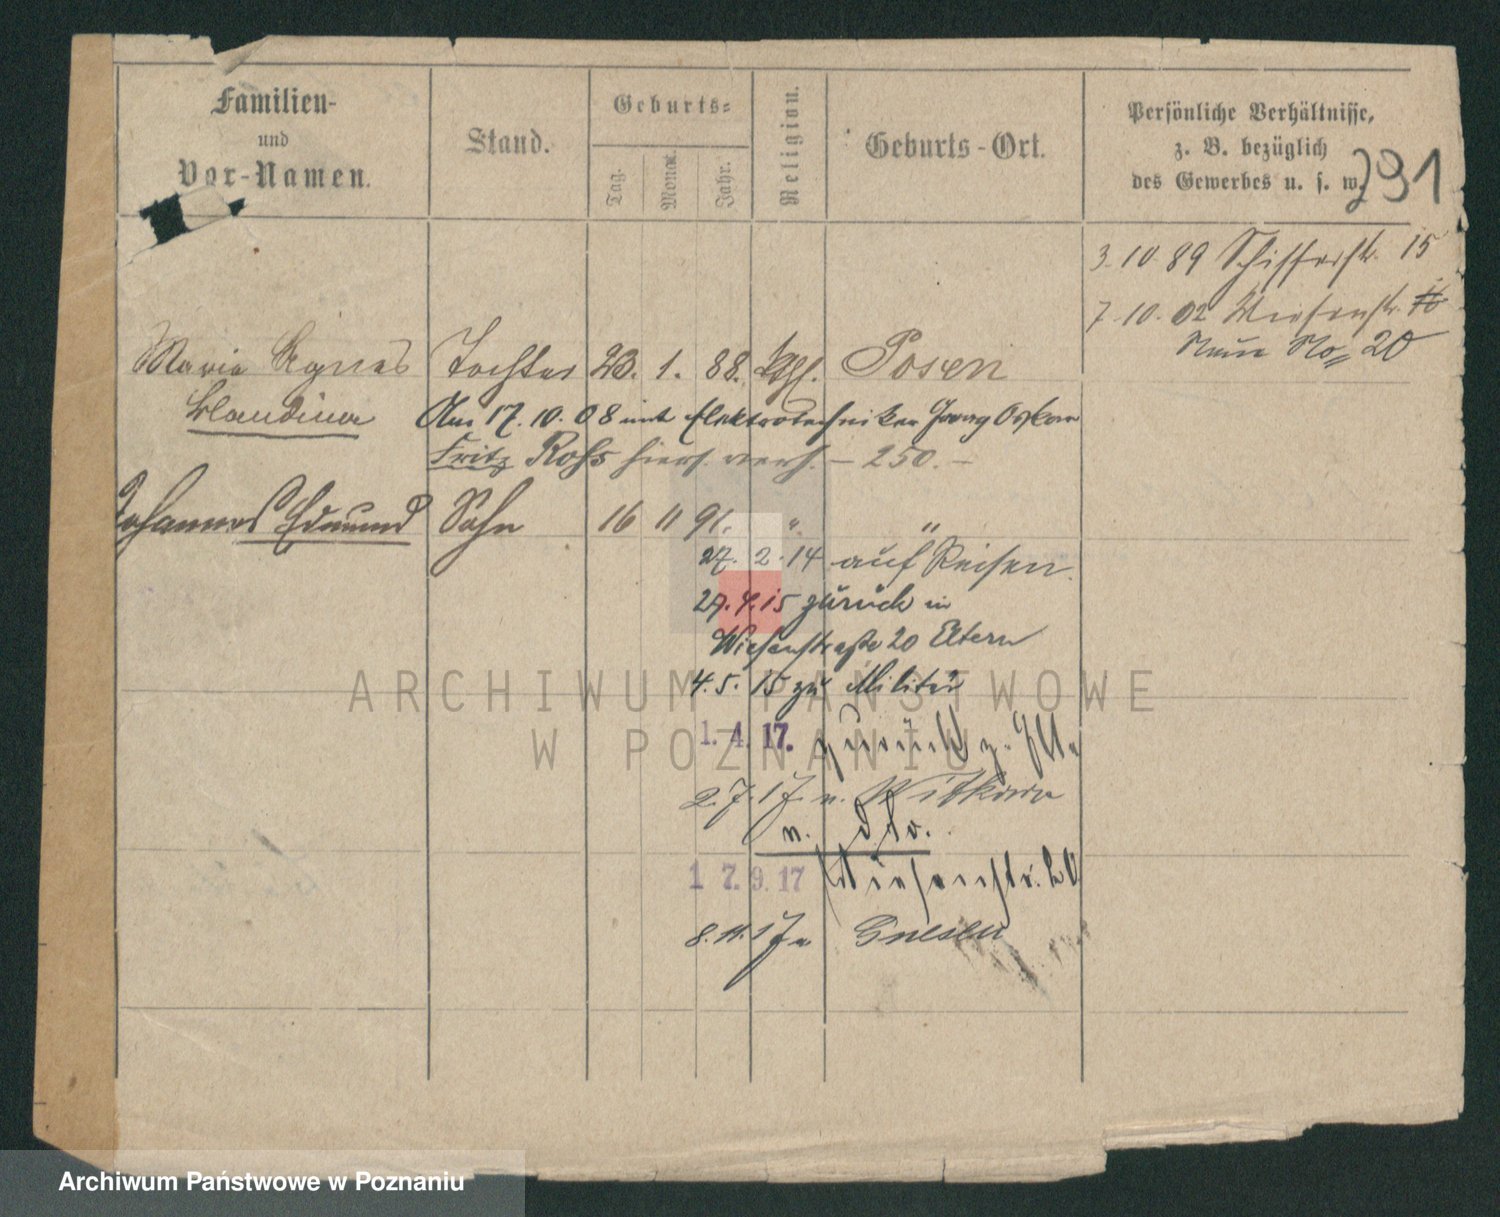 Familien-
und
Vor-Namen.
Stand.
Geburts-
Tag.
Monat.
Jahr.
Religion.
Geburts-Ort.
Persönliche Verhältnisse,
z. B. bezüglich
des Gewerbes u. s. w.
291
3. 10 89 Schifferstr. 15
7. 10. 02 Wiesenstr.
Neue No 20
Marie Agnes Tochter 23. 1. 88. Posen
Klaudina Am 17. 10. 08 mit Elektrotechniker Georg Oskar
Fritz Rohs hiers. verh. – 250. –
Johannes Edmund Sohn 16 11 91. " "
27. 2. 14 auf Reisen.
27. 4. 15 zurück in
Wiesenstraße 20 Eltern
4. 5. 15 zu Militär
1. 4. 17. zurück z.
2. 7. 17. n. Witkowo
n.
17. 9. 17 Wiesenstr. 20
8. 11. 17 n Gnesen
ARCHIWUM PAŃSTWOWE
W POZNANIU
Archiwum Państwowe w Poznaniu